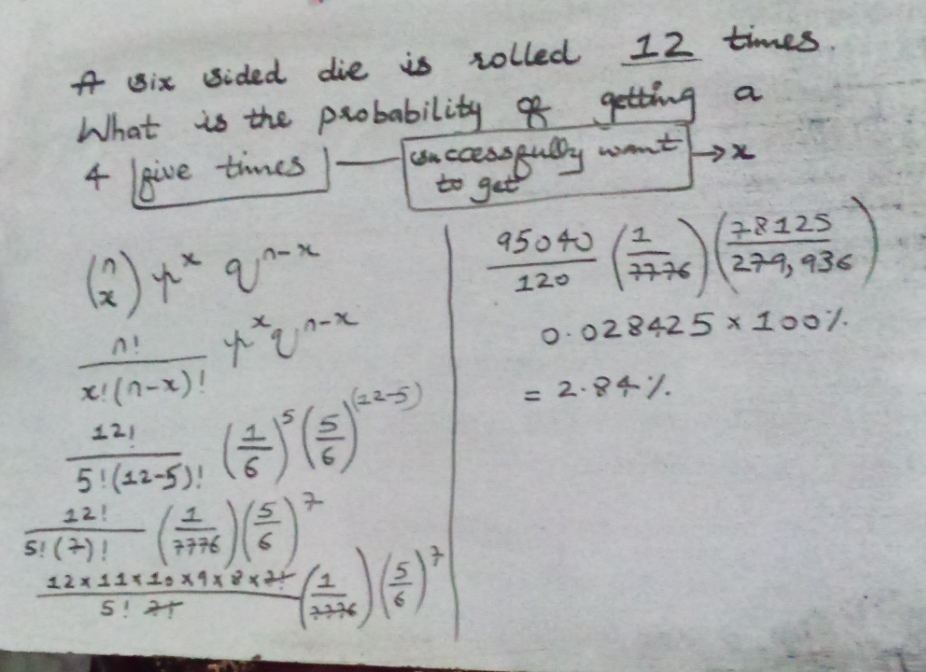 A six sided die is rolled 12 times.
What is the probability of getting a
4 five times — successfully want to get → x
(n x) p^x q^n-x
n! / x!(n-x)! p^x q^n-x
12! / 5!(12-5)! (1/6)^5 (5/6)^(12-5)
12! / 5!(7)! (1/7776) (5/6)^7
12x11x10x9x8x7! / 5! 7! (1/7776) (5/6)^7
95040/120 (1/7776) (78125/279,936)
0.028425 x 100%
= 2.84%